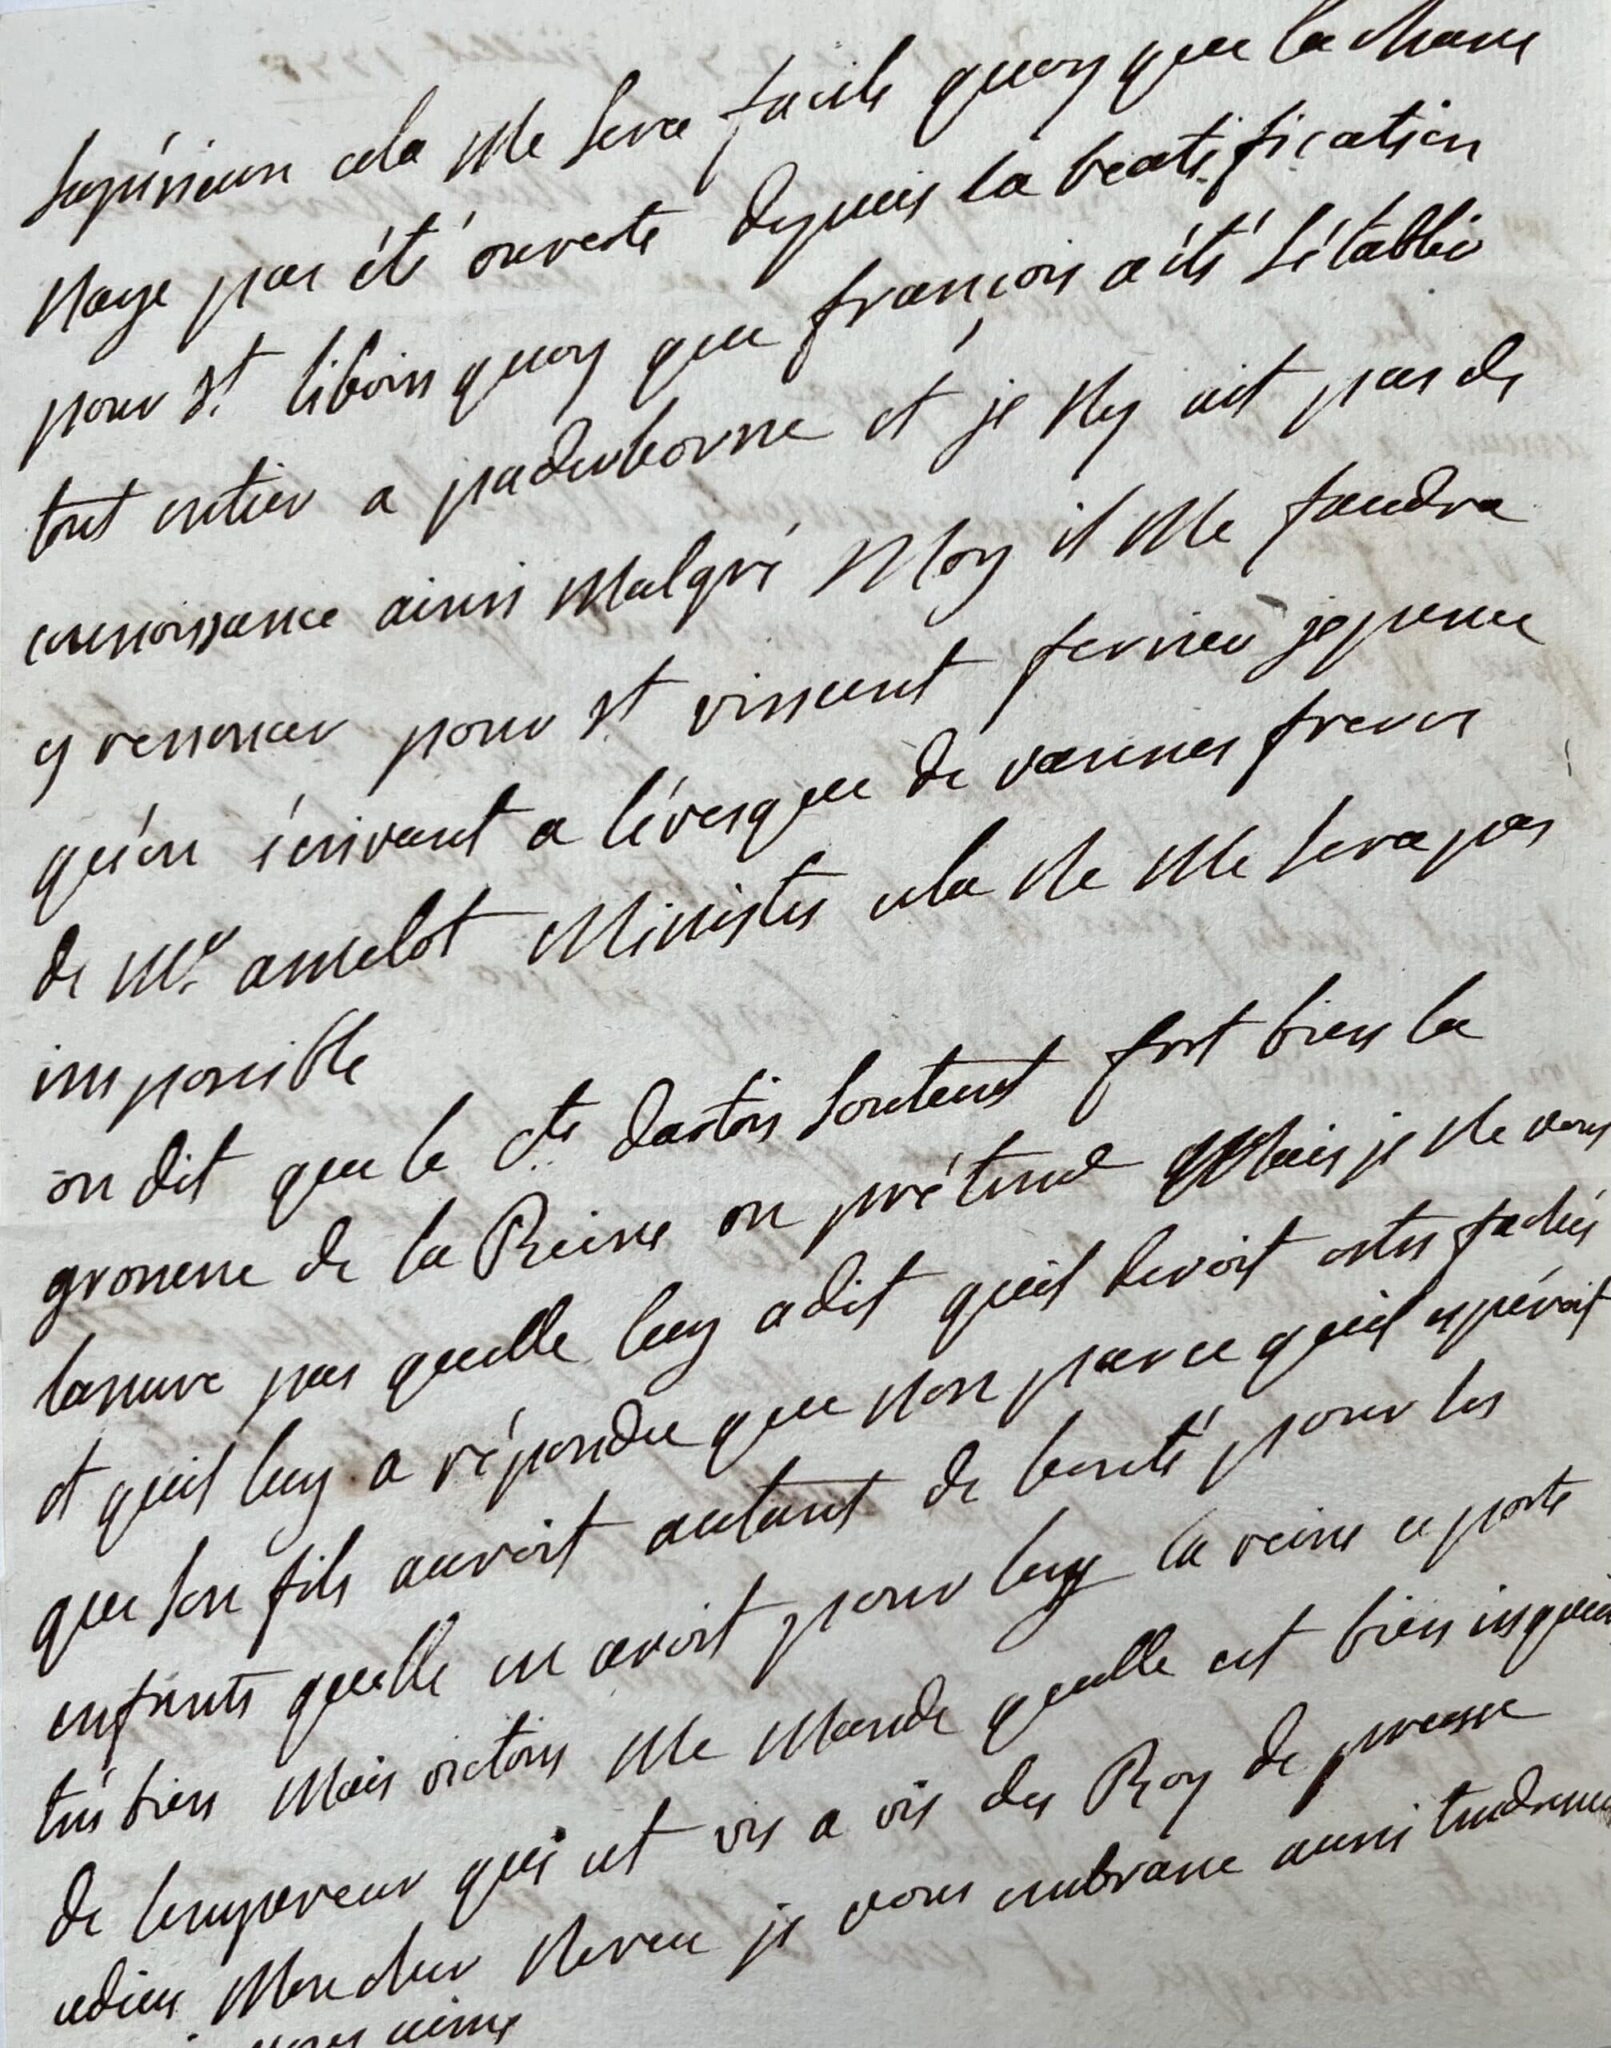 supérieure cela me sera facile quoy que la chasse
naye pas été ouverte depuis la beatification
pour st. liboire quoy que françois a été s'établir
tout entier a paderborne et je ny ait pas de
connoissance ainsi malgré moy il me faudra
y renoncer pour st vinssent ferrier je pense
qu'en écrivant a lévesque de vannes frere
de mr. amelot ministre cela ne me sera pas
impossible
on dit que le cte dartois soutient fort bien la
grossesse de la Reine on prétend mais je ne vous
lassure pas quelle luy a dit quil devoit estre faché
et quil luy a répondu que non parce quil espéroit
que son fils auroit autant de bonté pour les
enfants quelle en avoit pour luy la reine ce porte
trés bien mais victoire me mande quelle est bien inquiete
de lempereur qui est vis a vis du Roy de prusse
adieu mon cher neveu je vous embrasse aussi tendrement
vous aime